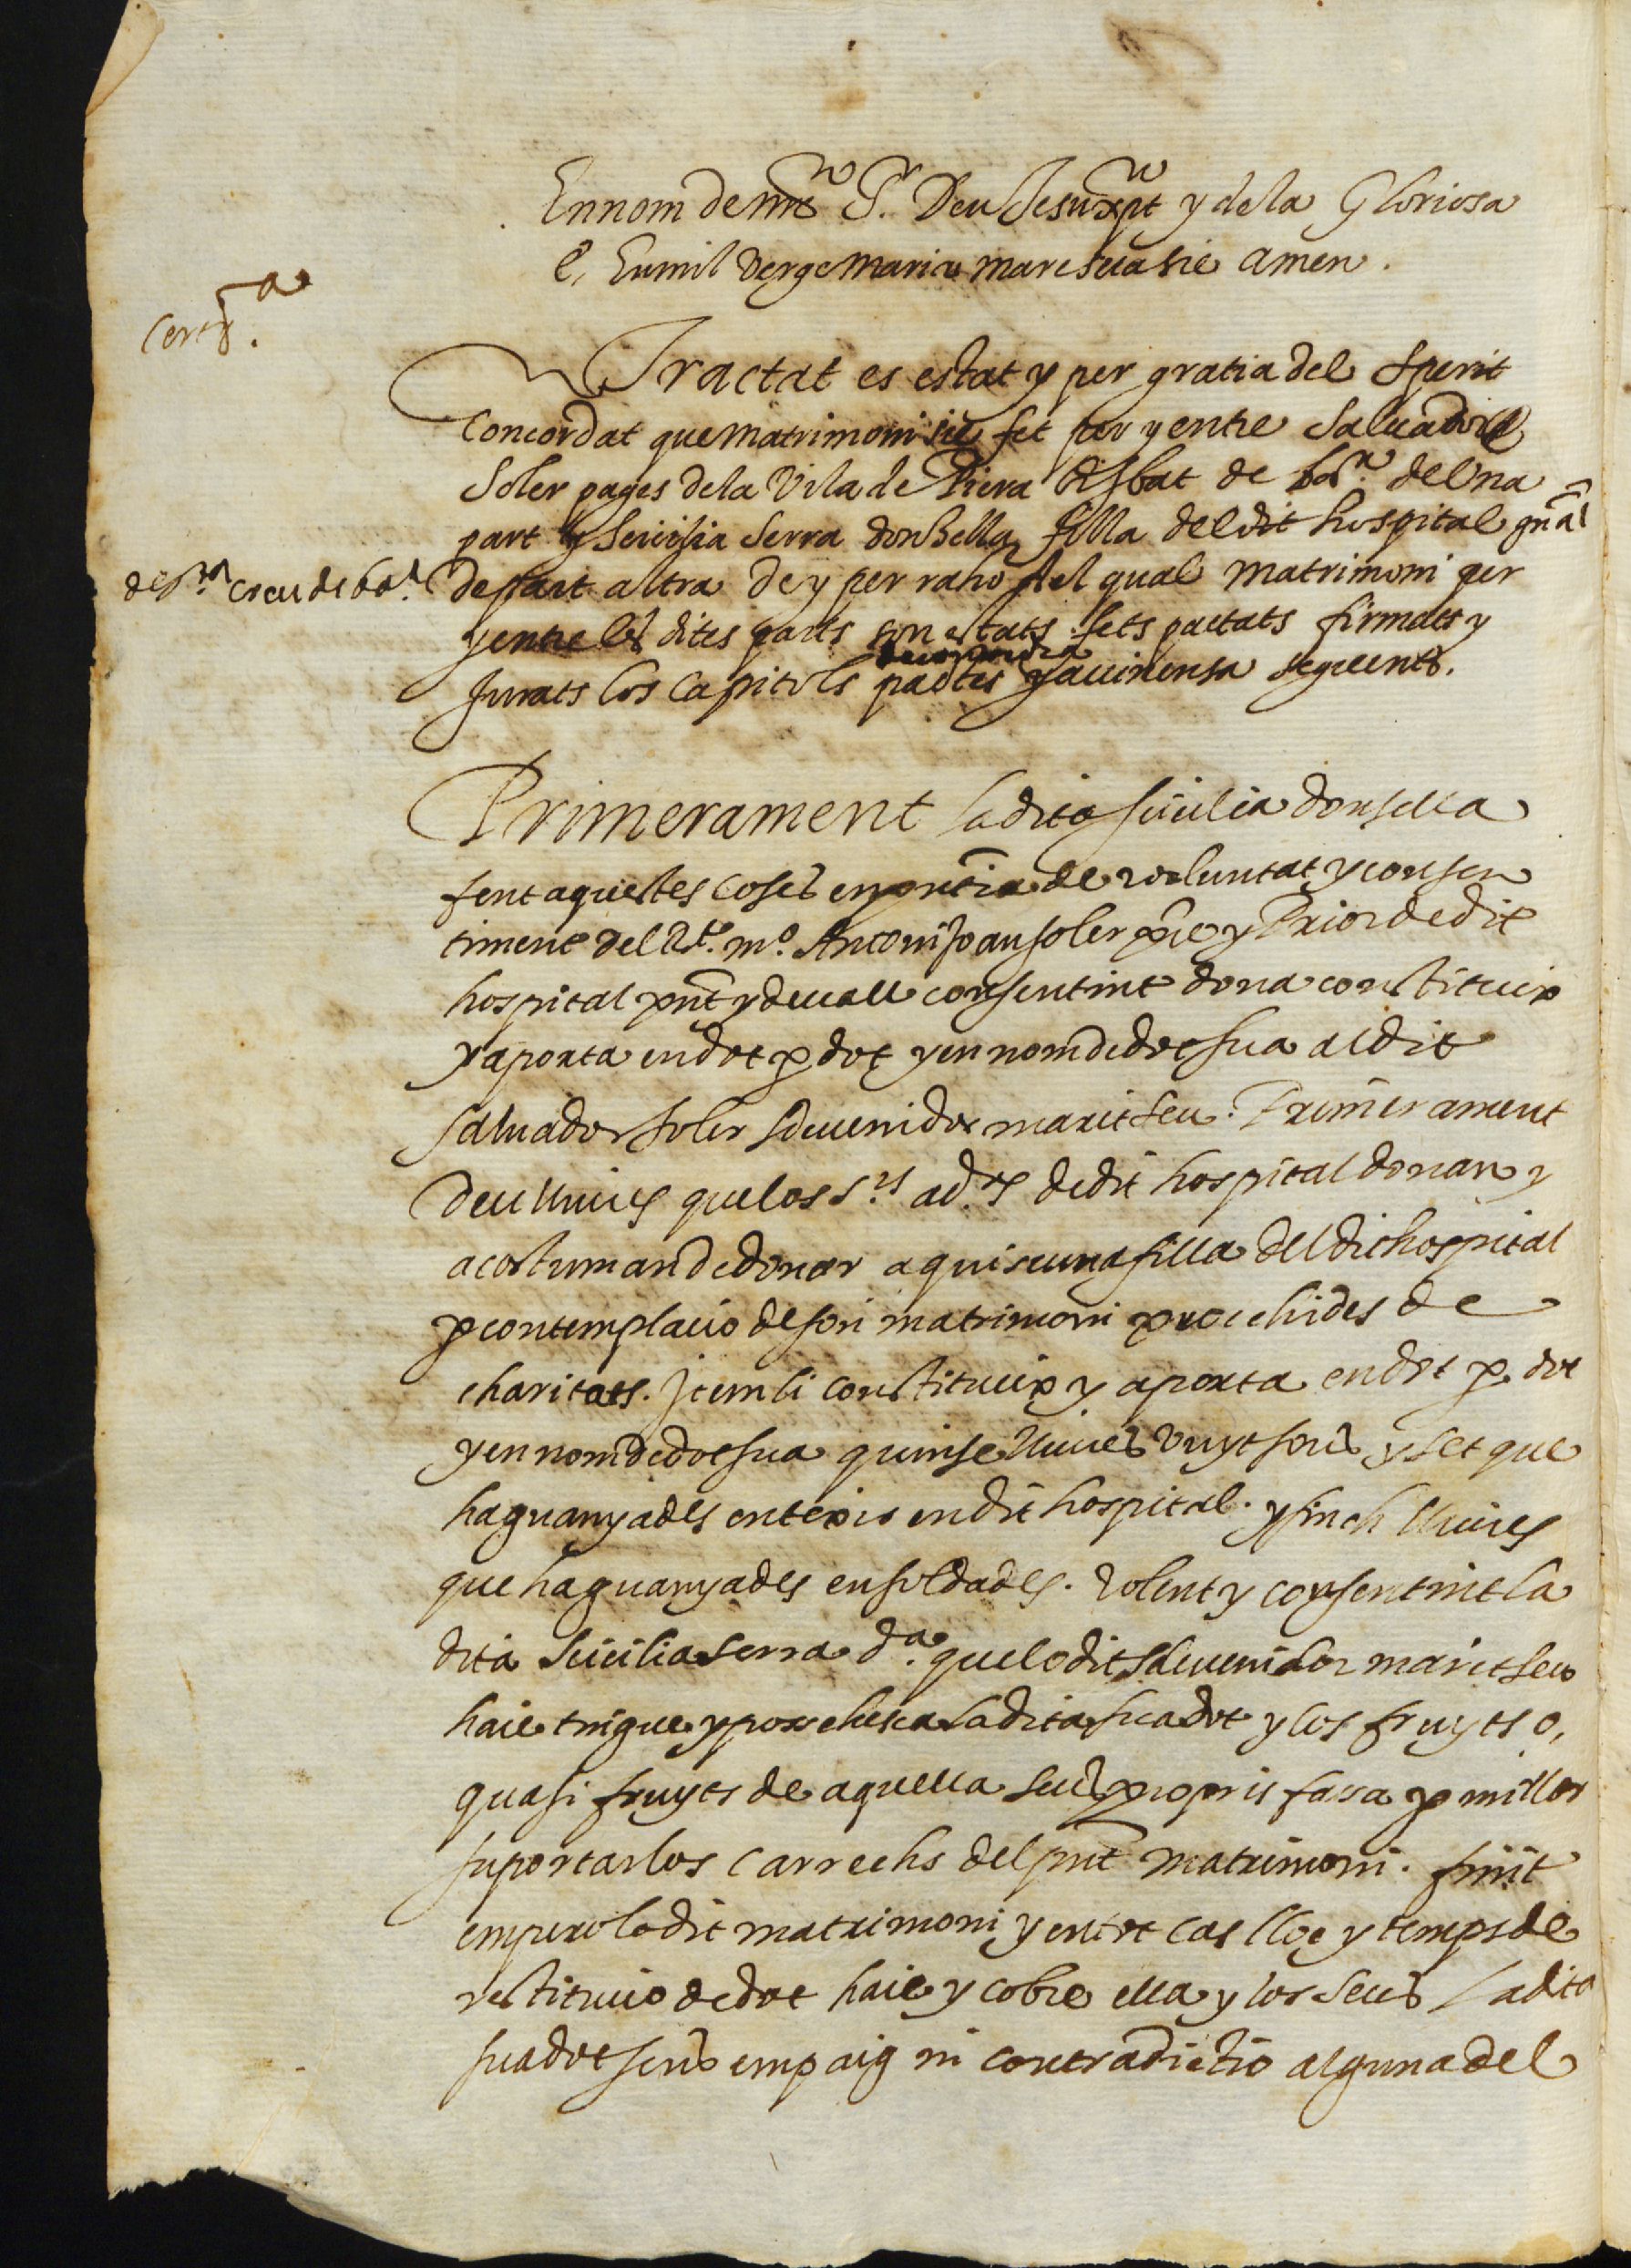 En nom de nre Sr. Deu Jesuxpt y de la Gloriosa
e, humil Verge Maria mare sua sie amen.
Certª.
Tractat es estat y per gratia del Sperit
Concordat que matrimoni sie fet per y entre Saluador
Soler pages dela Vila de Piera bisbat de barª. de Una
part y Sicilia Serra donsella filla del dit hospital gñal
de Sta. creu de barª.
de part altra de y per raho del qual matrimoni per
y entre les dites parts son estats fets pactats firmats y
Jurats los Capitols pactes y auinensa seguents.
Primerament la dita Sicilia donsella
fent aquestes coses en pntia de voluntat y consen
timent del Rt. mº. Antoni Joan soler pre y Prior de dit
hospital pnt y deuall consentint dona constitueix
y aporta en dot p dot y en nom de dot sua al dit
Saluador Soler sdeuenidor marit seu. Primerament
deu lliures que los srs. adrs. de dit hospital donan y
acostuman de donar a quiscuna filla del dit hospital
p contemplacio de son matrimoni procehides de
charitats. Item li constitueix y aporta en dot p dot
y en nom de dot sua quinse lliures vuyt sous y set que
ha guanyades en texir en dit hospital. y sinch lliures
que ha guanyades en soldades. Volent y consentint la
dita Sicilia Serra dª. que lo dit sdeuenidor marit seu
haie tingue y possehesca la dita sua dot y los fruyts o,
quasi fruyts de aquella seus propris fassa p millor
suportar los Carrechs del pnt matrimoni. finit
empero lo dit matrimoni y en tot cas lloc y temps de
restitucio de dot haie y cobre ella y los seus la dita
sua dot sens empaig ni contradictio alguna del